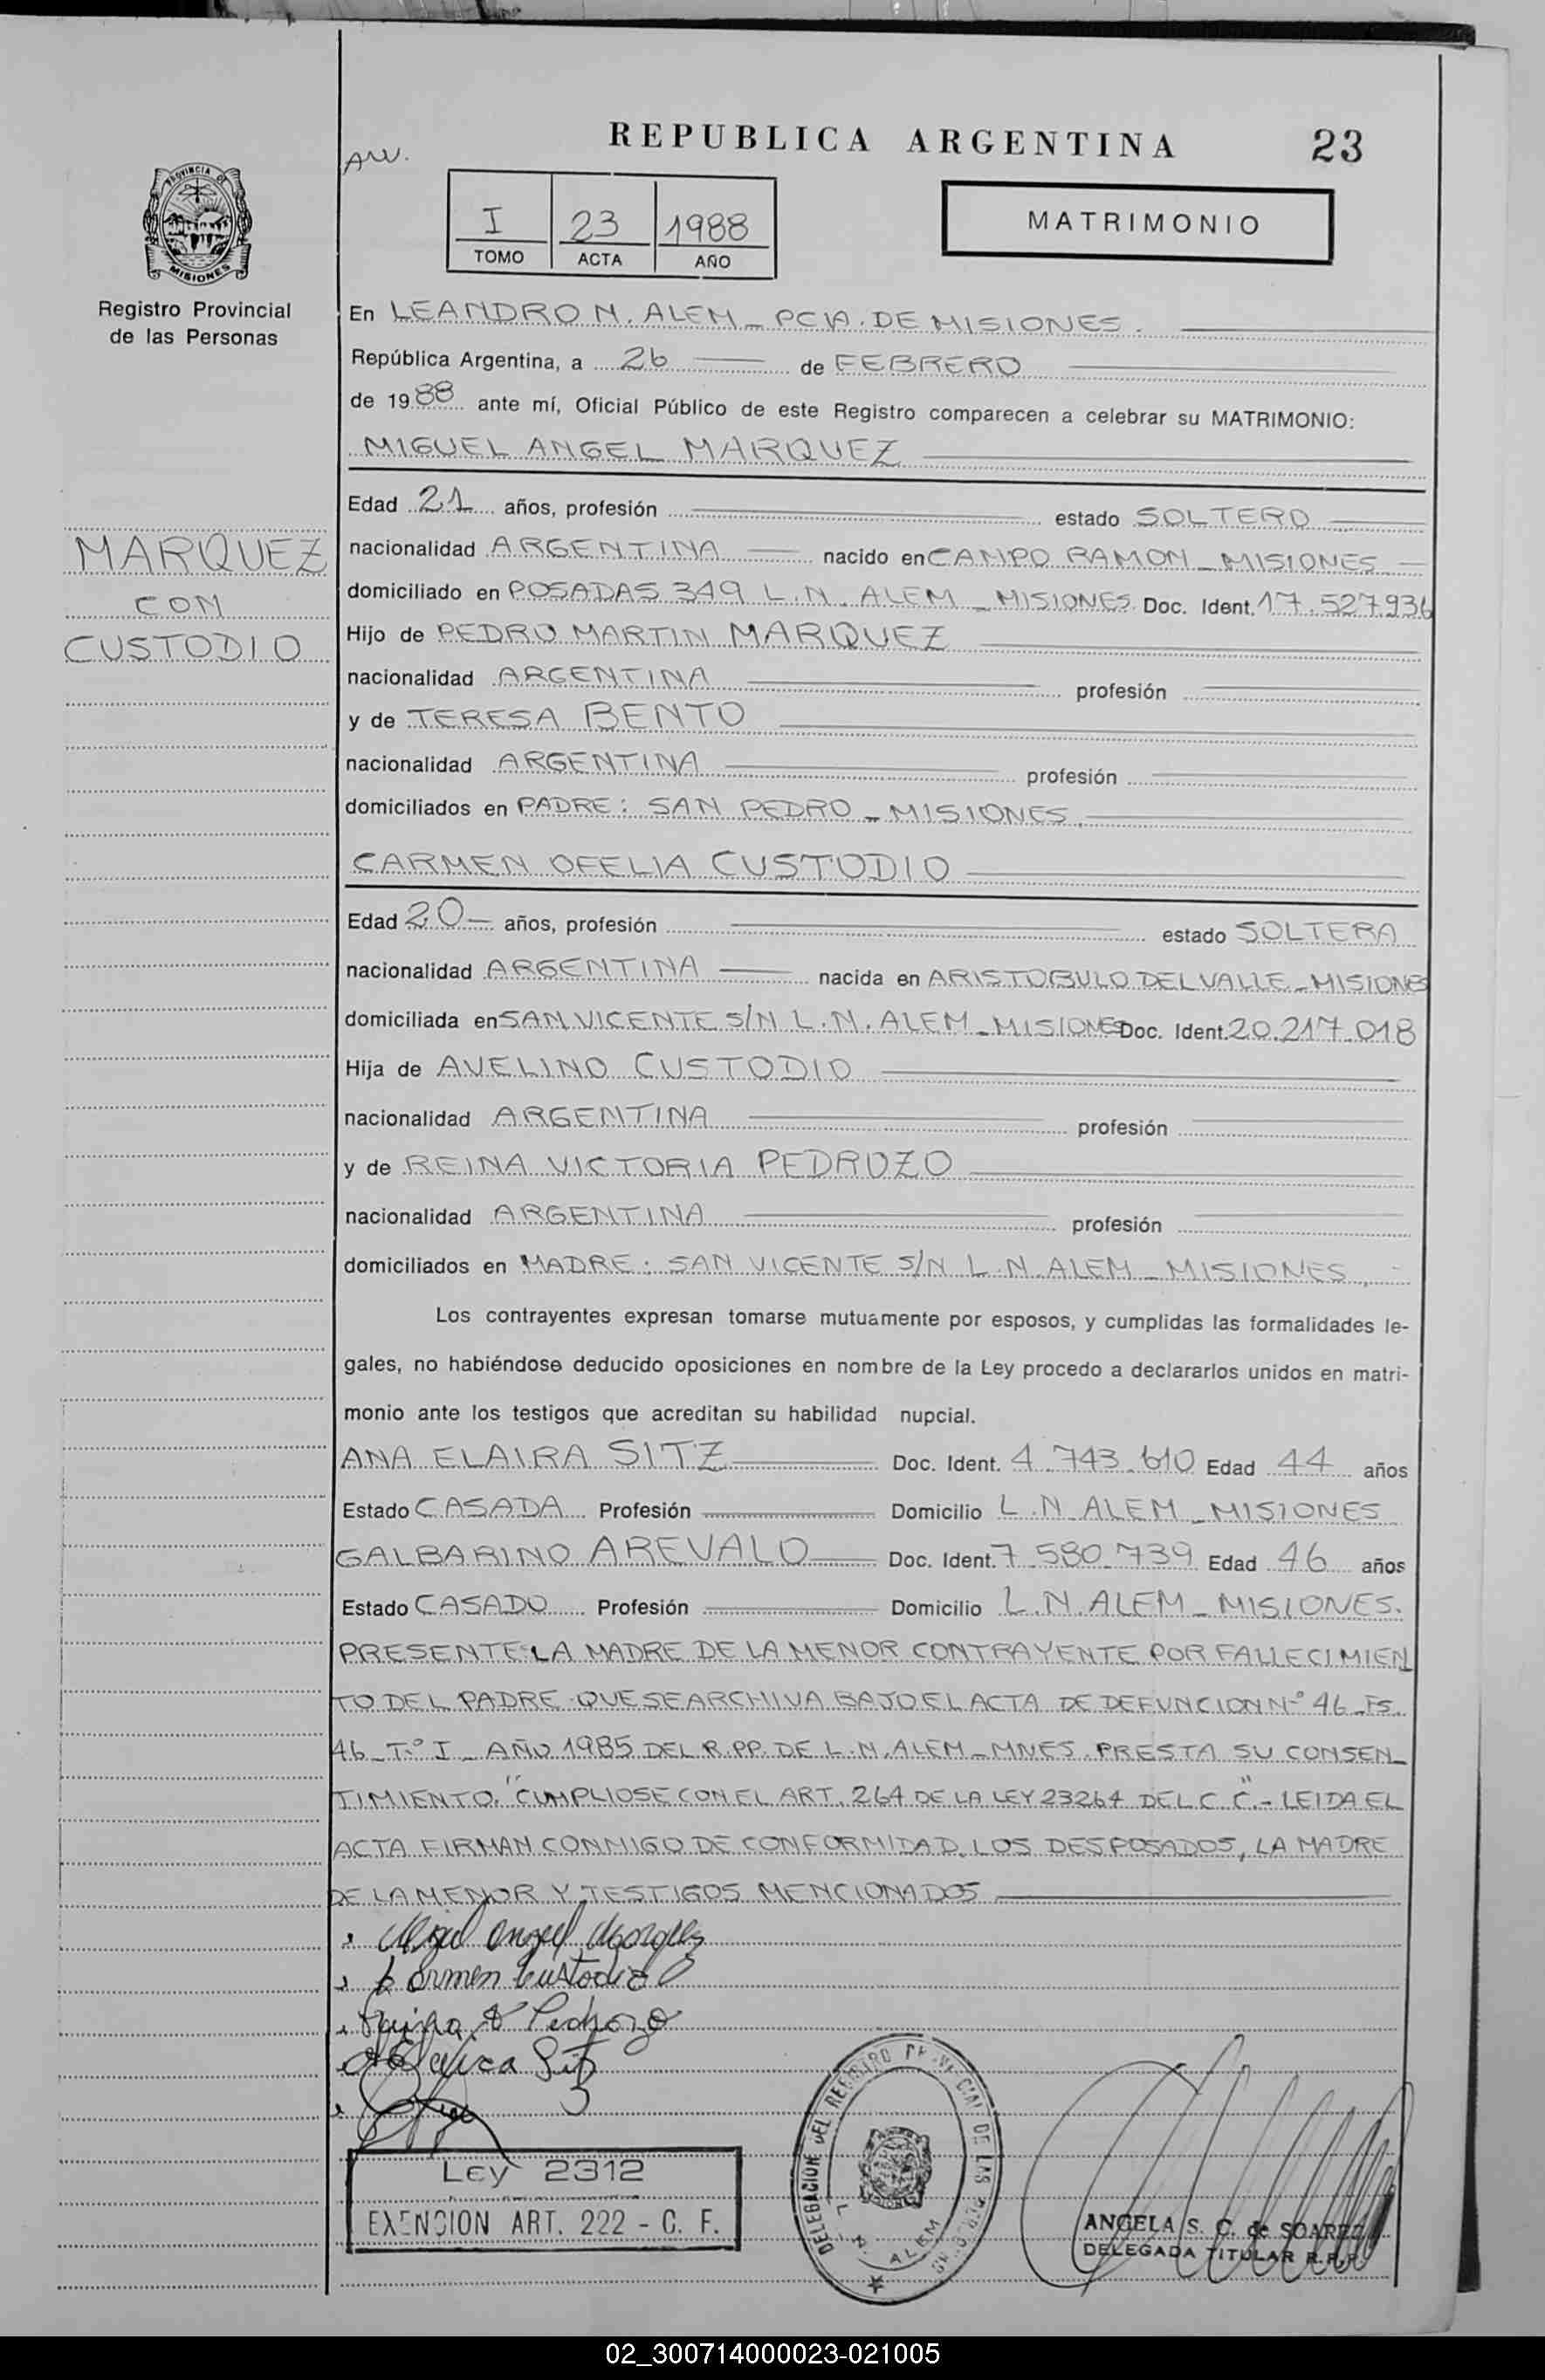 REPUBLICA ARGENTINA
23
AW.
PROVINCIA DE
MISIONES
I 23 1988
TOMO ACTA AÑO
MATRIMONIO
Registro Provincial
de las Personas
MARQUEZ
CON
CUSTODIO
En LEANDRO N. ALEM _ PCIA. DE MISIONES.
República Argentina, a 26 de FEBRERO
de 1988 ante mí, Oficial Público de este Registro comparecen a celebrar su MATRIMONIO:
MIGUEL ANGEL MARQUEZ
Edad 21 años, profesión estado SOLTERO
nacionalidad ARGENTINA nacido en CAMPO RAMON _ MISIONES
domiciliado en POSADAS 349 L.N. ALEM _ MISIONES. Doc. Ident. 17.527.936
Hijo de PEDRO MARTIN MARQUEZ
nacionalidad ARGENTINA profesión
y de TERESA BENTO
nacionalidad ARGENTINA profesión
domiciliados en PADRE: SAN PEDRO _ MISIONES.
CARMEN OFELIA CUSTODIO
Edad 20 años, profesión estado SOLTERA
nacionalidad ARGENTINA nacida en ARISTOBULO DEL VALLE _ MISIONES
domiciliada en SAN VICENTE S/N L.N. ALEM _ MISIONES Doc. Ident. 20.217.018
Hija de AVELINO CUSTODIO
nacionalidad ARGENTINA profesión
y de REINA VICTORIA PEDROZO
nacionalidad ARGENTINA profesión
domiciliados en MADRE: SAN VICENTE S/N L.N. ALEM _ MISIONES.
Los contrayentes expresan tomarse mutuamente por esposos, y cumplidas las formalidades le-
gales, no habiéndose deducido oposiciones en nombre de la Ley procedo a declararlos unidos en matri-
monio ante los testigos que acreditan su habilidad nupcial.
ANA ELAIRA SITZ Doc. Ident. 4.743.610 Edad 44 años
Estado CASADA Profesión Domicilio L.N. ALEM _ MISIONES
GALBARINO AREVALO Doc. Ident. 7.580.739 Edad 46 años
Estado CASADO Profesión Domicilio L.N. ALEM _ MISIONES.
PRESENTE LA MADRE DE LA MENOR CONTRAYENTE POR FALLECIMIEN
TO DEL PADRE QUE SE ARCHIVA BAJO EL ACTA DE DEFUNCION Nº 46 _ FS.
46 _ T.º I _ AÑO 1985 DEL R.PP. DE L.N. ALEM _ MNES. PRESTA SU CONSEN_
TIMIENTO. "CUMPLIOSE CON EL ART. 264 DE LA LEY 23264 DEL C.C". - LEIDA EL
ACTA FIRMAN CONMIGO DE CONFORMIDAD, LOS DESPOSADOS, LA MADRE
DE LA MENOR Y TESTIGOS MENCIONADOS
Miguel Angel Marquez
Carmen Custodio
Reina V Pedrozo
A Elaira Sitz
Ley 2312
EXENCION ART. 222 - C. F.
DELEGACION DEL REGISTRO PROVINCIAL DE LAS PERSONAS
L. N. ALEM
ANGELA S. C. de SOAREZ
DELEGADA TITULAR R.P.P.
02_300714000023-021005